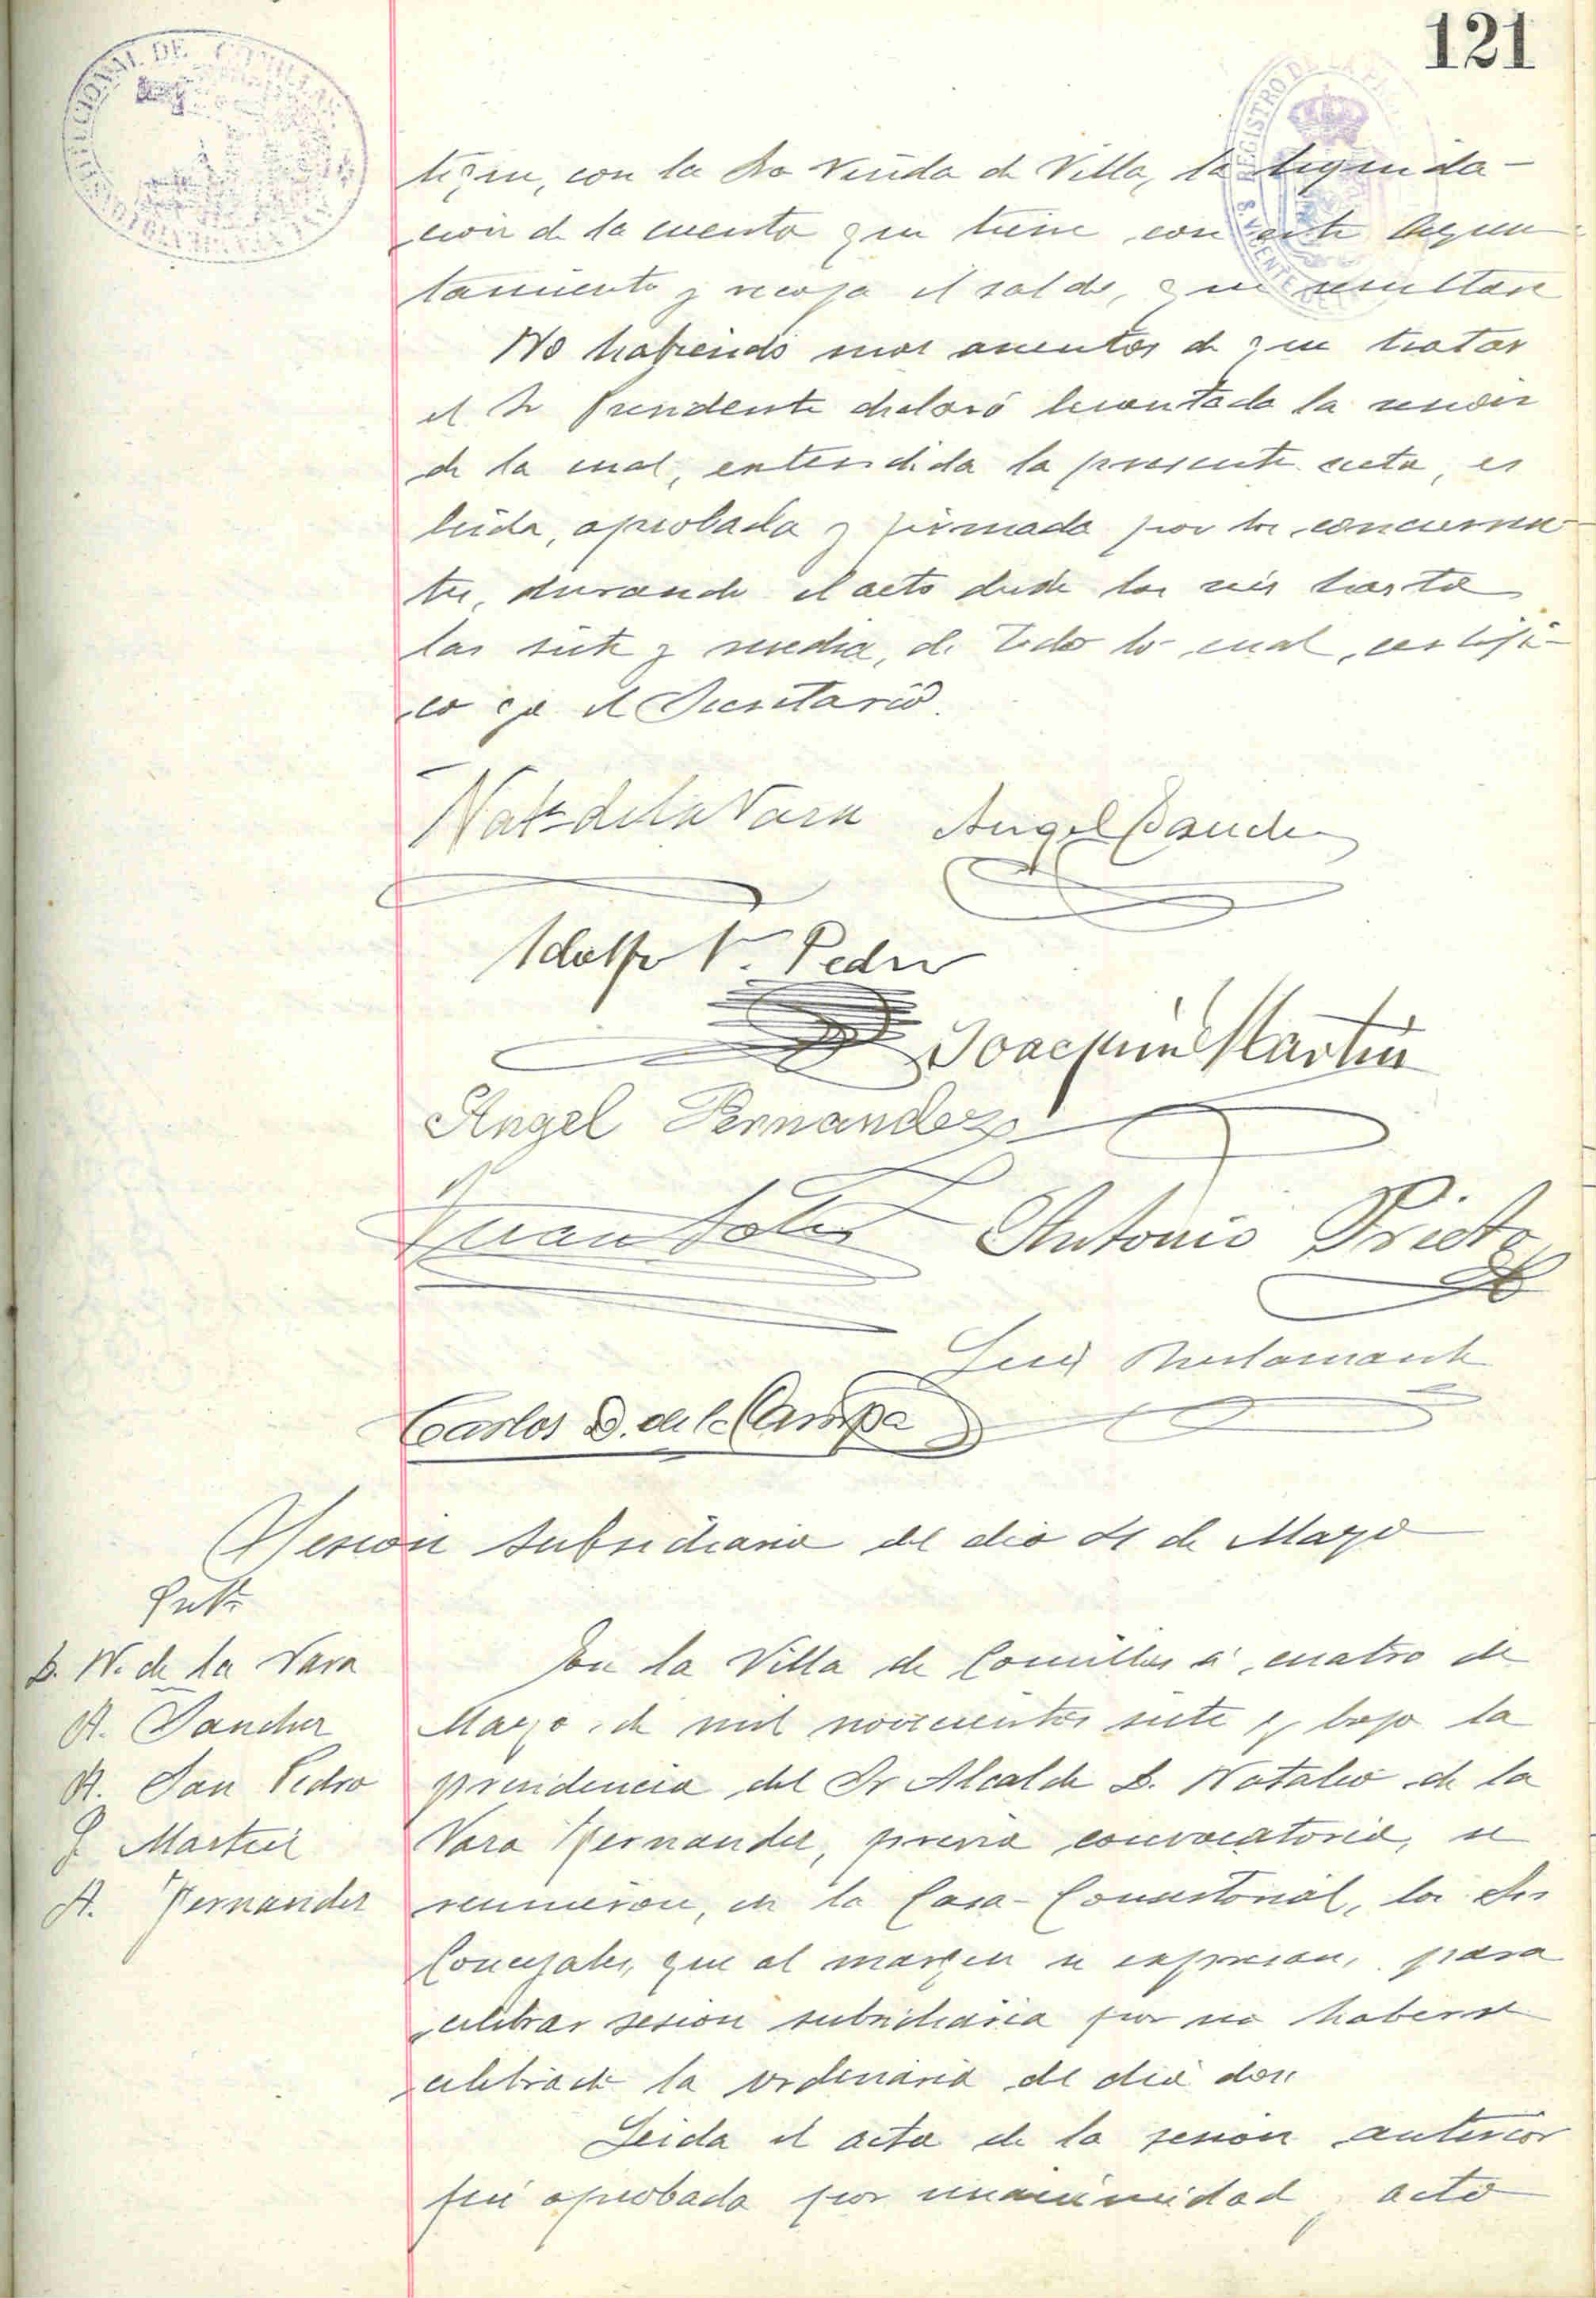 121
tique, con la Sra Viuda de Villa, la liquida-
ción de la cuenta que tiene con este Ayun
tamiento y recoja el saldo, que resultare
No habiendo mas asuntos de que tratar
el Sr Presidente declaró levantada la sesión
de la cual, extendida la presente acta, es
leida, aprobada y firmada por los concurren-
tes, durando el acto desde las seis hasta
las siete y media, de todo lo cual, certifi-
co yo el Secretario.
Nat. de la Vara Angel Sanchez
Adolfo S. Pedro
Joaquin Martin
Angel Fernandez
Juan Antonio Prieto
Luis Bustamante
Carlos D. de la Campa
Sesion subsidiaria del dia 4 de Mayo
D. N. de la Vara
A. Sanchez
A. San Pedro
J. Martin
A. Fernandez
En la Villa de Comillas á cuatro de
Mayo de mil novecientos siete y bajo la
presidencia del Sr Alcalde D. Natalio de la
Vara Fernandez, previa convocatoria, se
reunieron, en la Casa-Consistorial, los Srs
Concejales, que al margen se expresan, para
celebrar sesion subsidiaria por no haberse
celebrado la ordinaria del dia dos.
Leida el acta de la sesion anterior
fué aprobada por unanimidad, acto